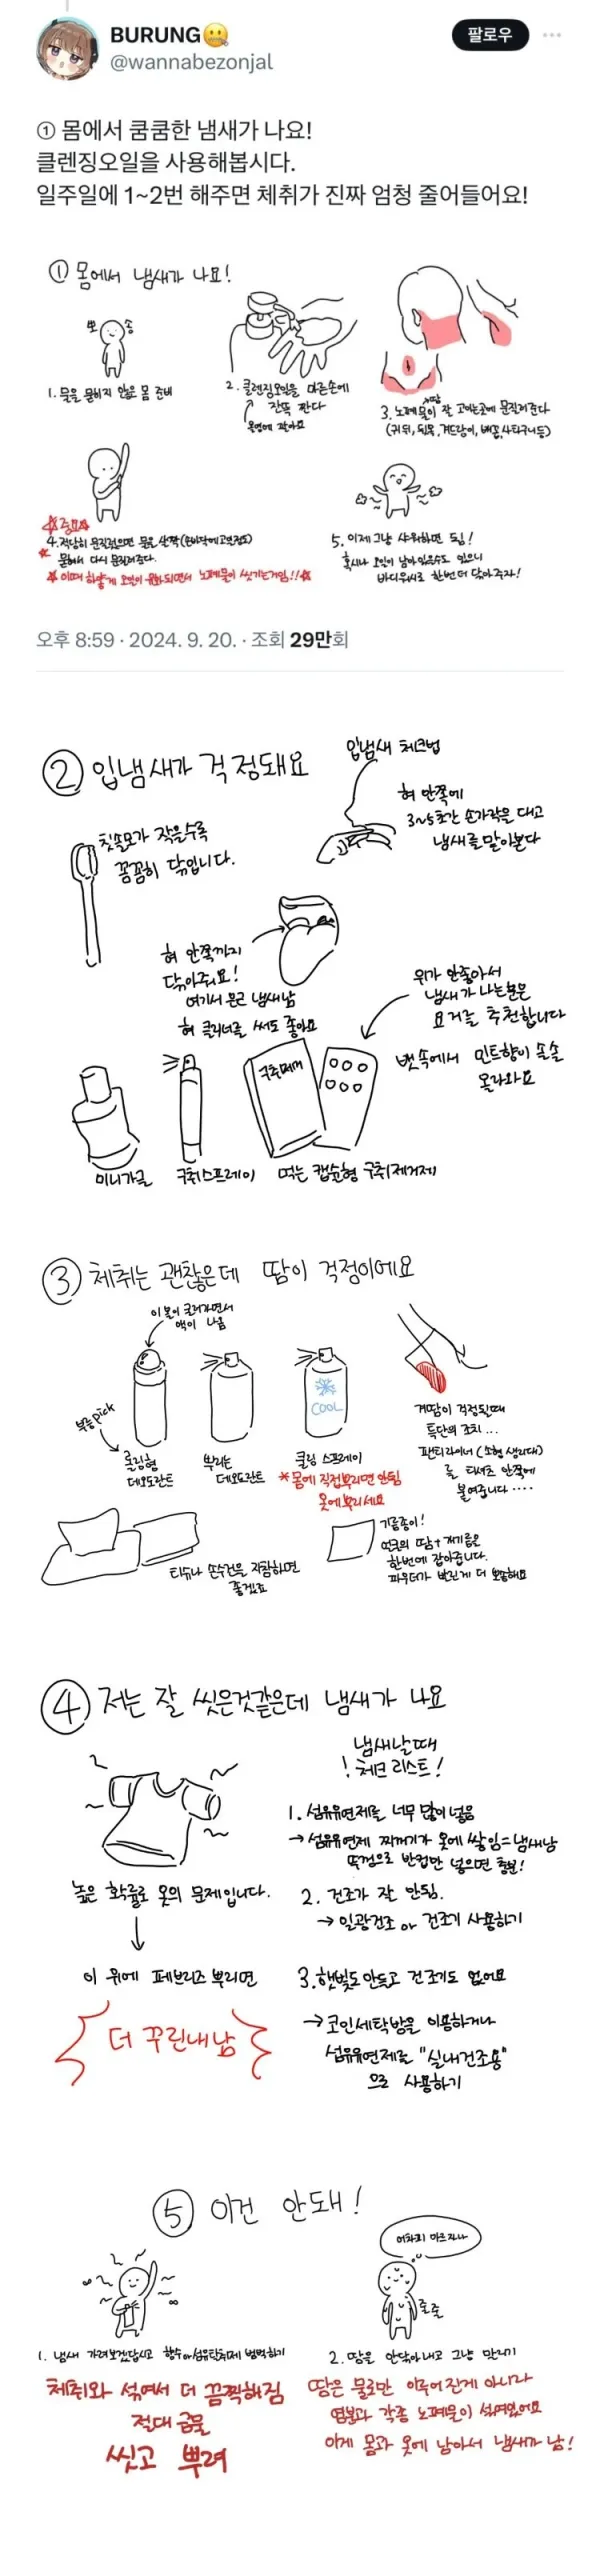 BURUNG🤐
@wannabezonjal
팔로우
① 몸에서 쿰쿰한 냄새가 나요!
클렌징오일을 사용해봅시다.
일주일에 1~2번 해주면 체취가 진짜 엄청 줄어들어요!
① 몸에서 냄새가 나요!
뽀송
1. 물을 묻히지 않은 몸 준비
2. 클렌징오일을 마른손에
잔뜩 짠다
3. 노폐물이 잘 고이는곳에 문질러준다
땀
(귀뒤, 뒷목, 겨드랑이, 배꼽, 사타구니등)
☆중요☆
4. 적당히 문질렀으면 물을 살짝 (손바닥에 고일정도)
묻혀서 다시 문질러준다.
☆이때 하얗게 오일이 유화되면서 노폐물이 씻기는거임!!☆
5. 이제 그냥 샤워하면 됨!
혹시나 오일이 남아있을수도 있으니
바디워시로 한번 더 닦아주자!
오후 8:59 · 2024. 9. 20. · 조회 29만회
② 입냄새가 걱정돼요
입냄새 체크법
혀 안쪽에
3~5초간 손가락을 대고
냄새를 맡아본다
칫솔모가 작을수록
꼼꼼히 닦입니다.
혀 안쪽까지
닦아줘요!
여기서 은근 냄새남
혀 클리너를 써도 좋아요
위가 안좋아서
냄새가 나는분은
요거를 추천합니다
뱃속에서 민트향이 솔솔
올라와요
구취제거
미니가글
구취스프레이
먹는 캡슐형 구취제거제
③ 체취는 괜찮은데 땀이 걱정이에요
이 볼이 굴러가면서
액이 나옴
부룽pick
롤링형
데오도란트
뿌리는
데오도란트
COOL
쿨링 스프레이
*몸에 직접뿌리면 안됨
옷에뿌리세요
겨땀이 걱정될때
특단의 조치...
팬티라이너 (소형 생리대)
를 티셔츠 안쪽에
붙여줍니다....
티슈나 손수건을 지참하면
좋겠죠
기름종이!
얼굴의 땀+개기름을
한번에 잡아줍니다.
파우더가 발린게 더 뽀송해요
④ 저는 잘 씻은것같은데 냄새가 나요
냄새날때
! 체크 리스트!
높은 확률로 옷의 문제입니다.
이 위에 페브리즈 뿌리면
더 꾸린내남
1. 섬유유연제를 너무 많이 넣음
→ 섬유유연제 찌꺼기가 옷에 쌓임=냄새남
뚜껑으로 반컵만 넣으면 충분!
2. 건조가 잘 안됨.
→ 일광건조 or 건조기 사용하기
3. 햇빛도 안들고 건조기도 없어요
→ 코인세탁방을 이용하거나
섬유유연제를 "실내건조용"
으로 사용하기
⑤ 이건 안돼!
1. 냄새 가려보겠답시고 향수or섬유탈취제 범벅하기
체취와 섞여서 더 끔찍해짐
절대 금물
씻고 뿌려
어차피 마르자나
줄줄
2. 땀을 안닦아내고 그냥 말리기
땀은 물로만 이루어진게 아니라
염분과 각종 노폐물이 섞여있어요
이게 몸과 옷에 남아서 냄새가 남!